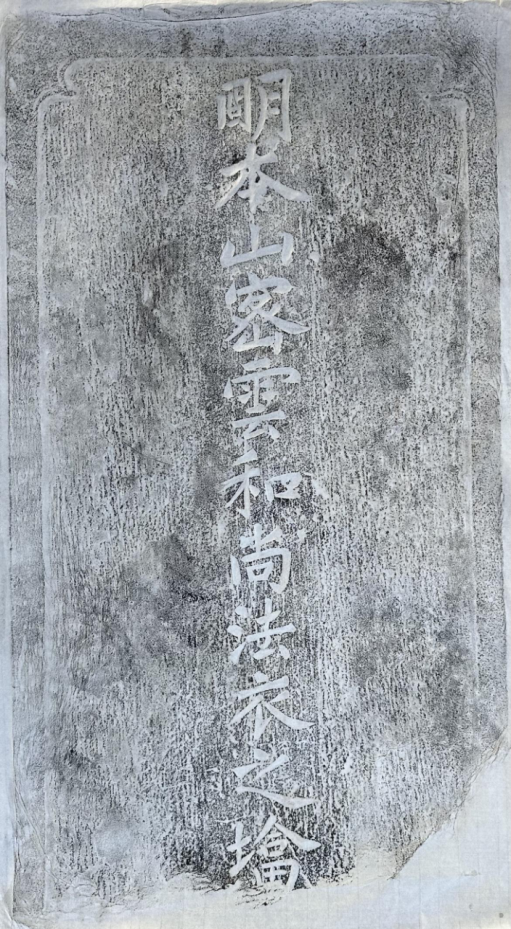 明本山密雲和尚法衣之墖